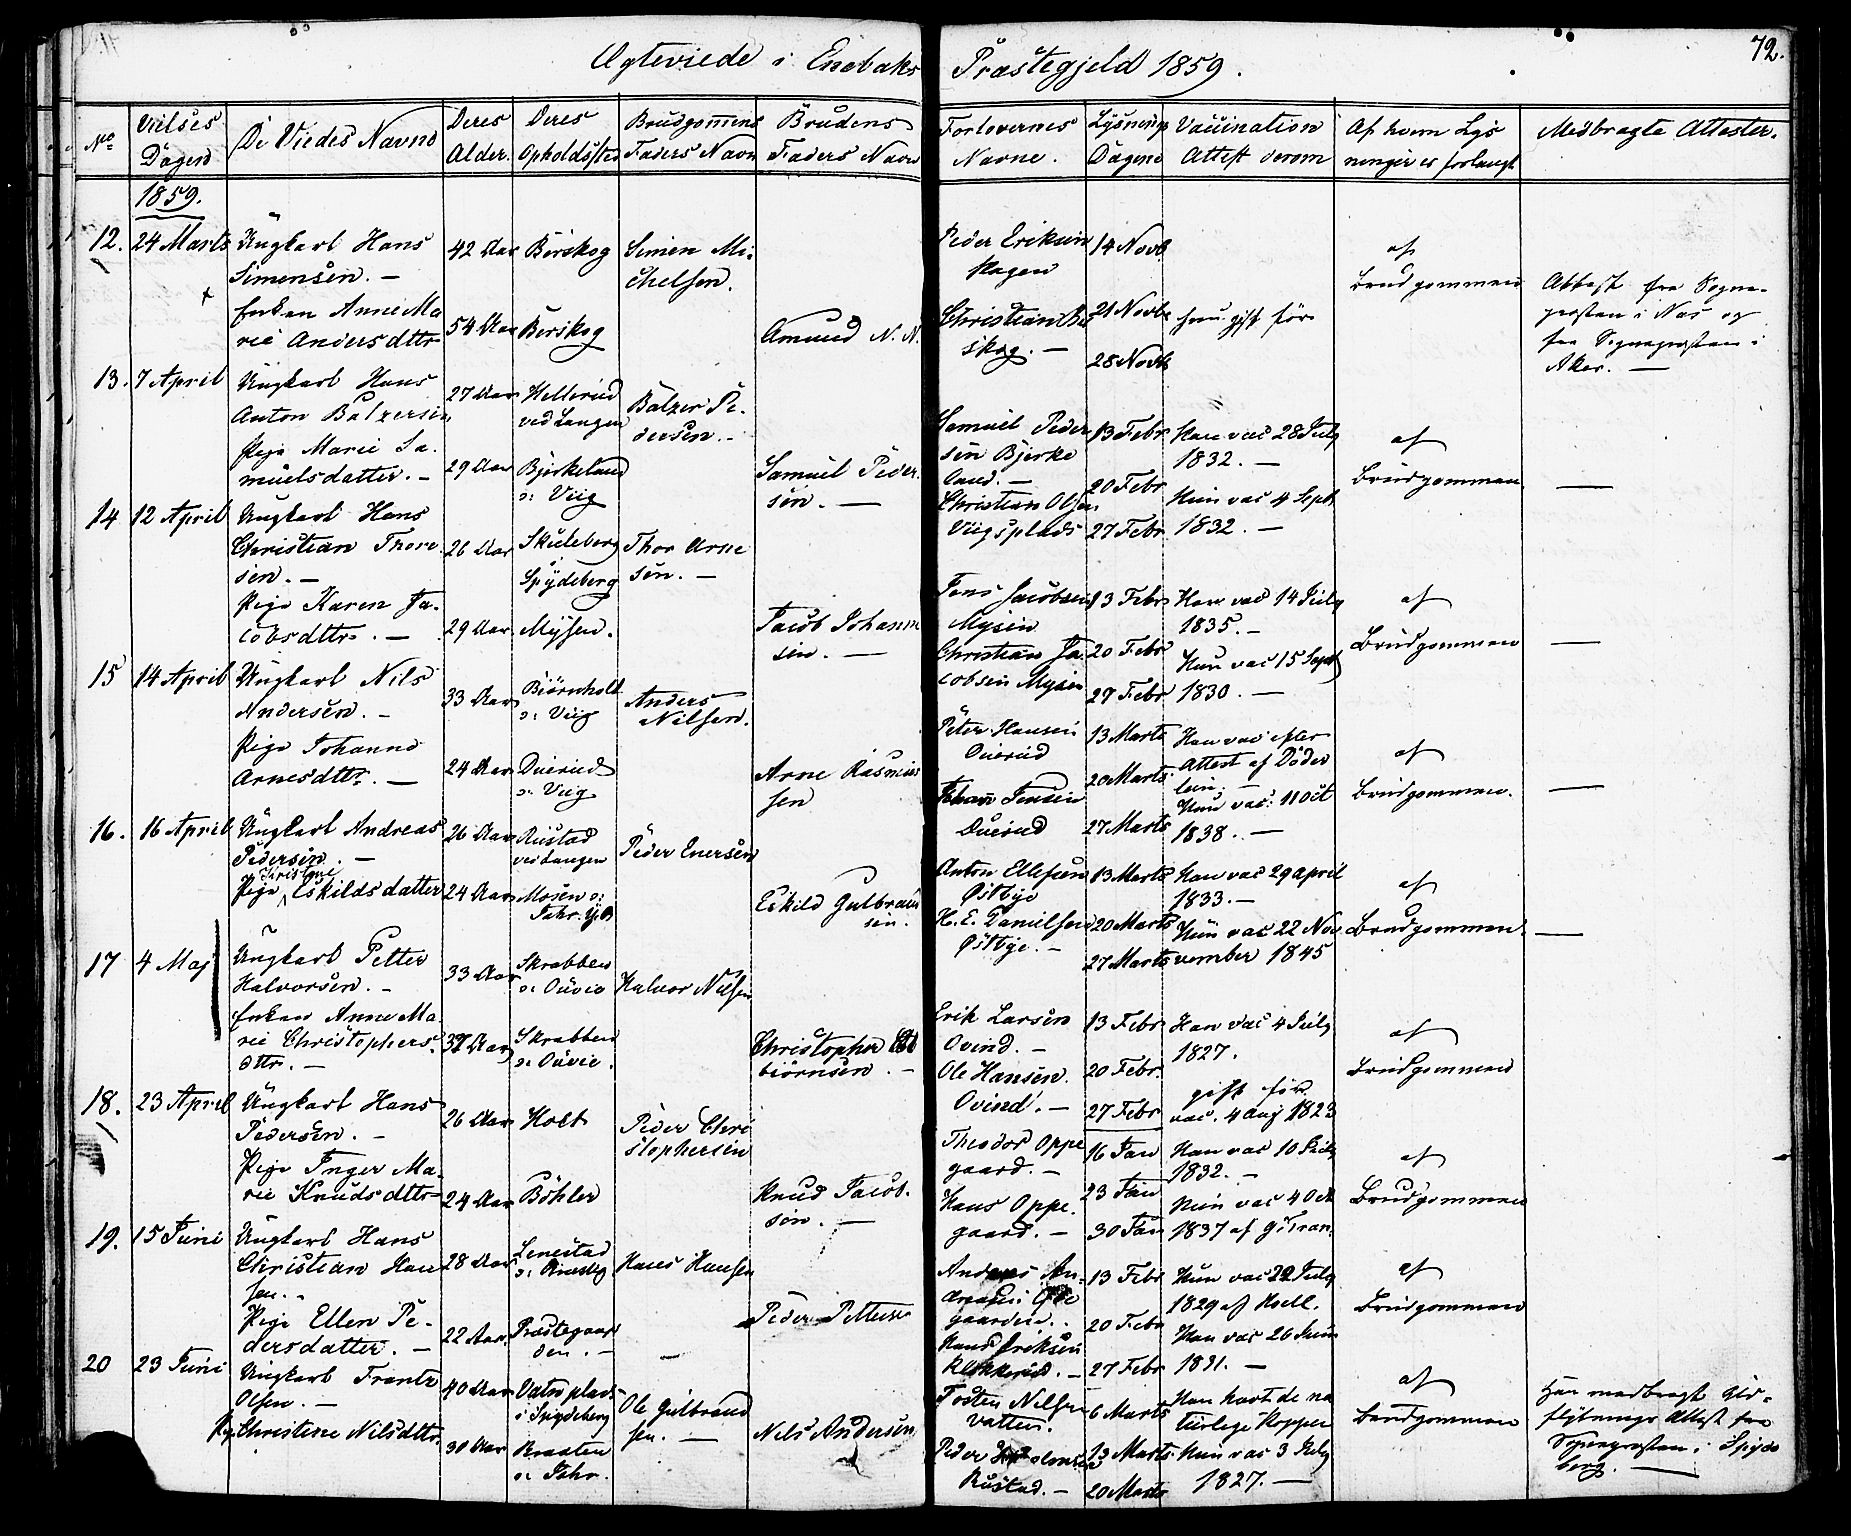 Ægteviede i Enebaks Præstegjeld 1859.
72.
No
Vielses Dagene
De Viedes Navne
Deres Alder.
Deres Opholdsted
Brudgommens Faders Navn
Brudens Faders Navn
Forlovernes Navne.
Lysnings Dagene
Vaccination Attest derom
Af hvem Lysninger er forlangt
Medbragte Attester.
1859.
12. 24 Marts Ungkarl Hans
Simensen. —
42 Aar Børskog Simen Mi-
chelsen.
Enken Anne Ma
rie Andersdttr
54 Aar Børskog
Amund N. N.
Peder Eriksen
Hagen
Christian Bø
skog. —
14 Novb
21 Novb
28 Novb
hun gift før
af
Brudgommen
Attest fra Sogne-
præsten i Næs og
fra Sognepræsten i
Aker. —
13. 7 April Ungkarl Hans
Anton Balzersen
27 Aar Hellerud
ved Langen
Balzer Pe-
dersen. —
Pige Marie Sa-
muelsdatter. —
29 Aar Bjerkeland
o: Viig
Samuel Peder-
sen. —
Samuel Peder
sen Bjerke
land. —
Christian Olsen
Viigsplads
13 Febr
20 Febr
27 Febr
Han vac 28 July
1832. —
Hun vac 4 Septb
1832. —
af
Brudgommen
—
14 12 April Ungkarl Hans
Christian Thore
sen. —
26 Aar
Spydeberg
Thor Arne
sen. —
Pige Karen Ja-
cobsdttr. —
29 Aar Mysen.
Jacob Johann
sen. —
Jens Jacobsen
Mysen
Christian Ja-
cobsen Mysen
13 Febr
20 Febr
27 Febr
Han vac 14 July
1835. —
Hun vac 15 Septb
1830. —
af
Brudgommen
—
15 14 April Ungkarl Nils
Andersen. —
33 Aar Biørnholt
o: Viig
Anders
Nilsen.
Pige Johanne
Arnesdttr. —
24 Aar Duerud
o: Viig
Arne Rasmus
sen
Peter Hansen
Duerud
Johan Jensen
Duerud
13 Marts
20 Marts
27 Marts
Han vac efter
Attest af Døder
lein; —
Hun vac: 11 Oct
1838. —
af
Brudgommen.
—
16. 16 April Ungkarl Andreas
Pedersen. —
26 Aar Rustad
ved Langen
Peder Enersen
Pige Eskildsdatter
24 Aar Mosen o:
Eskild Gulbrand
sen.
Anton Ellefsen
Østbye
H. E. Danielsen
Østbye. —
13 Marts
20 Marts
27 Marts
Han vac 29 april
1833. —
Hun vac 22 No-
vember 1845
af
Brudgommen.
—
17 4 Maj Ungkarl Petter
Halvorsen. —
33 Aar Skrabben
Halvor Nilsen
Enken Anne Ma
rie Christophers-
dttr. —
37 Aar Skrabben
Christopher
biørnsen. —
Erik Larsen
Ovind. —
Ole Hansen
Ovind. —
13 Febr
20 Febr.
27 Febr
Han vac 4 July
1827.
gift før
vac. 4 Aug 1823
af
Brudgommen
18. 23 April Ungkarl Hans
Pedersen. —
26 Aar Holt
Peder Chri
stophersen
Pige Inger Ma-
rie Knudsdttr
24 Aar Bøhler
Knud Jacob-
sen. —
Theodor Oppe
gaard. —
Hans Oppe-
gaard. —
16 Jan
23 Jan
30 Jan
Han vac 10 July
1832. —
Hun vac 4 Oct
1837 af
af
Brudgommen
19. 15 Juni Ungkarl Hans
Christian Han
sen. —
28 Aar
Hans Hansen
Pige Ellen Pe-
dersdatter. —
22 Aar. Præstegaar
den. —
Peder Pettersen
gaarden. .
Hans Eriksen
Klokkerud. —
13 Febr
20 Febr
27 Febr
Hun vac 22 July
1829 af
Han vac 26 Juni
1831. —
af
Brudgommen
20 23 Juni Ungkarl Frantz
Olsen. —
40 Aar
i Spydeberg
Ole Gulbrand
sen. —
Pig. Christine Nilsdttr.
30 Aar Braaten
Nils Andersen
Vatten.
Peder
Rustad. —
6 Marts
13 Marts
20 Marts
Han havt de na
turlige Kopper
Hun vac 3 July
1827. —
af
Brudgommen
Han medbragt Ud-
flytnings Attest fra
Sognepræsten i Spyde
berg. —